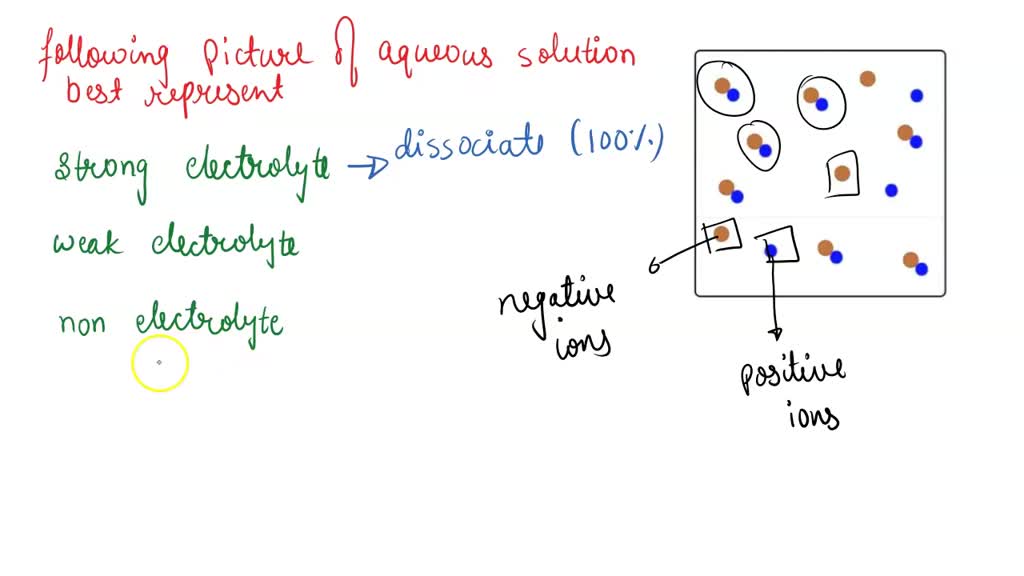 following picture of aqueous solution
best represent
strong electrolyte → dissociate (100%)
weak electrolyte
non electrolyte
negative
ions
positive
ions